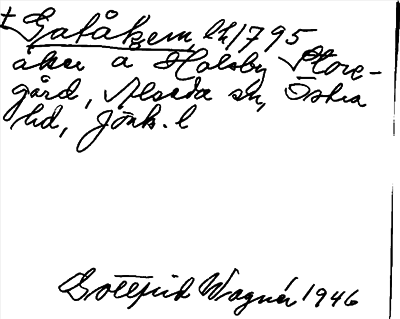 ± Gatåkern, LL 1795
åker a Holsby Store-
gård, Alseda sn, Östra
hd, Jönk. l
Gottfrid Wagnér 1946